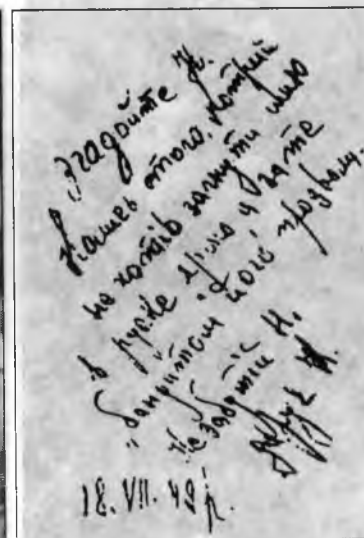 Згадайте Н.
Колись того, котрий
не хотів загнути шию
в руске ярмо и за те
"бандитом" його прозвали.
Не забудте Н.
Друг Н.
18. VII. 49 р.